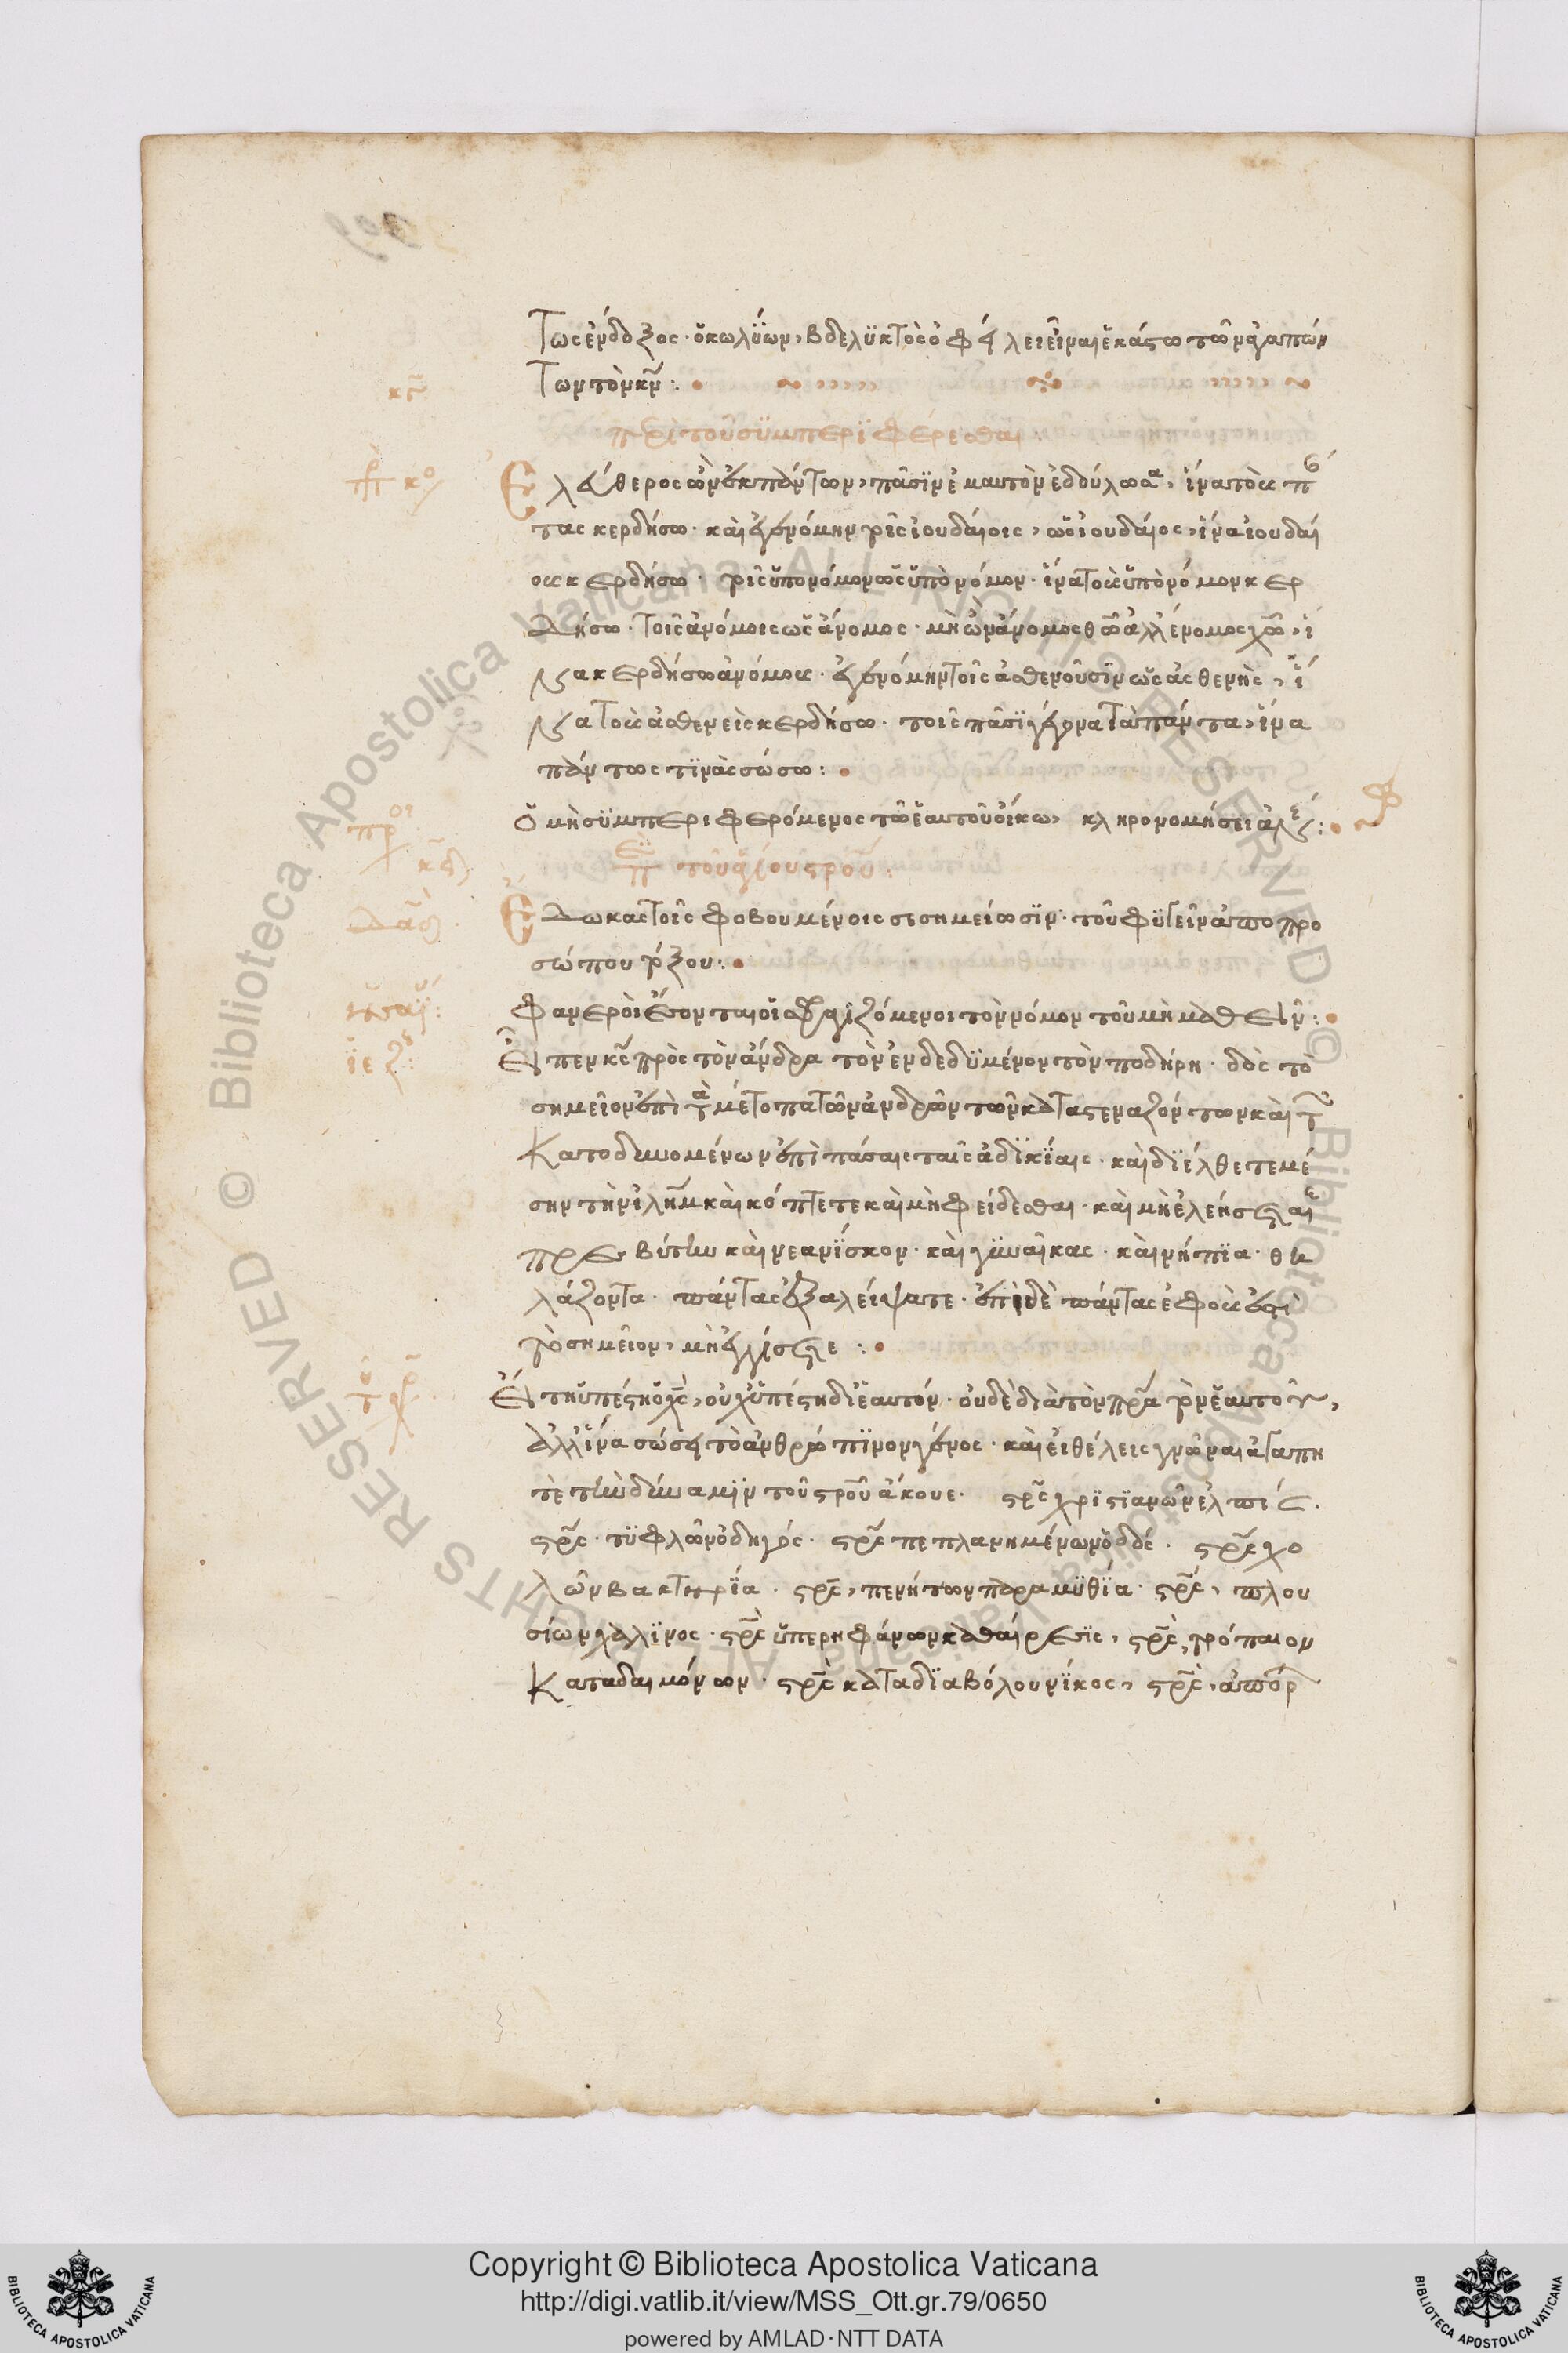 τως ἔνδοξος· ὁ κωλύων, βδελυκτὸς ὀφείλει εἶναι ἑκάστω τῶν ἀγαπών
των τὸν κν̄:
κϛ̄
περὶ τοῦ συμπεριφέρεσθαι
Ἐλεύθερος ὢν ἐκ πάντων, πᾶσιν ἐμαυτὸν ἐδούλωσα, ἵνα τοὺς π
τας κερδήσω· καὶ ἐγενόμην τοῖς ἰουδαίοις, ὡς ἰουδαῖος, ἵνα ἰουδαί
ους κερδήσω· τοῖς ὑπονόμον ὡς ὑπὸ νόμον· ἵνα τοὺς ὑπὸ νόμον κερ
δήσω· τοῖς ἀνόμοις ὡς ἄνομος· μὴ ὢν ἄνομος θω̄ ἀλλ' ἔνομος χω̄, ἵ
να κερδήσω ἀνόμους· ἐγενόμην τοῖς ἀσθενοῦσιν ὡς ἀσθενὴς, ἵ
να τοὺς ἀσθενεῖς κερδήσω· τοῖς πᾶσι γέγονα τὰ πάντα, ἵνα
πάντως τινὰς σώσω:
Ὁ μὴ συμπεριφερόμενος τῶ ἑαυτοῦ οἴκω, κληρονομήσει ἀν:
τοῦ ἁγίου στροῦ:
δαδ
Ἔδωκας τοῖς φοβουμένοις σε σημείωσιν· τοῦ φυγεῖν ἀπο προ
σώπου τόξου:
Φανεροὶ ἔσονται οἱ σφραγιζόμενοι τὸν νόμον τοῦ μὴ μαθεῖν:
ἰεζ
Εἶπεν κς̄ πρὸς τὸν ἄνδρα τὸν ἐνδεδυμένον τὸν ποδήρη· δὸς τὸ
σημεῖον ἐπὶ τὰ μέτοπα τῶν ἀνδρῶν τῶν καταστεναζόντων καὶ τ
κατοδυνομένων ἐπὶ πάσαις ταῖς ἀδικίαις· καὶ διέλθετε μέ
σην τὴν ἰλημ καὶ κόπτετε καὶ μὴ φείδεσθαι· καὶ μὴ ἐλεήσηται
πρεσβύτην καὶ νεανίσκον· καὶ γυναῖκας· καὶ νήπια· θη
λάζοντα· πάντας ἐξαλείψατε· ἐπὶ δὲ πάντας ἐφ' οὓς ἐστὶ
τὸ σημεῖον, μὴ ἐγγίσητε:
τοῦ χρ
Εἴ τι ὑπέστη ὁ χς̄, οὐχ ὑπέστη δι' ἑαυτόν· οὐδὲ διὰ τὸν πρ̄α τὸν ἑαυτοῦ,
ἀλλ' ἵνα σώση τὸ ἀνθρώπινον γένος· καὶ εἰ θέλεις γνῶναι ἀγαπη
τὲ τὴν δύναμιν τοῦ στροῦ ἄκουε· στρς̄ χριστιανῶν ἐλπίς.
στρς̄· τυφλῶν ὁδηγός· στρς̄ πεπλανημένων ὁδός· στρς̄ χο
λῶν βακτηρία· στρς̄, πενήτων παραμυθία· στρς̄, πλου
σίων χαλινος· στρς̄ ὑπερηφάνων καθαίρεσις, στρς̄, τρόπαιον
κατα δαιμόνων· στρς̄ κατα διαβόλου νίκος, στρς̄, ἀπόρ
Copyright © Biblioteca Apostolica Vaticana
http://digi.vatlib.it/view/MSS_Ott.gr.79/0650
powered by AMLAD·NTT DATA